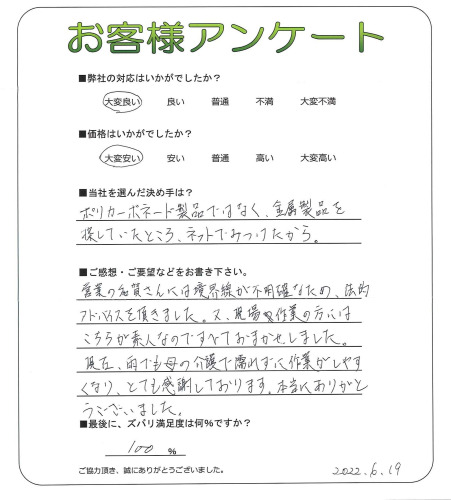 お客様アンケート
■弊社の対応はいかがでしたか？
大変良い 良い 普通 不満 大変不満
■価格はいかがでしたか？
大変安い 安い 普通 高い 大変高い
■当社を選んだ決め手は？
ポリカーボネード製品ではなく、金属製品を
探していたところ、ネットでみつけたから。
■ご感想・ご要望などをお書き下さい。
営業の名賀さんには境界線が不明確なため、法的
アドバイスを頂きました。又、現場作業の方には
こちらが素人なのですべておまかせしました。
現在、雨でも母の介護で濡れずに作業がしやす
くなり、とても感謝しております。本当にありがと
うございました。
■最後に、ズバリ満足度は何％ですか？
100 ％
ご協力頂き、誠にありがとうございました。
2022.6.19